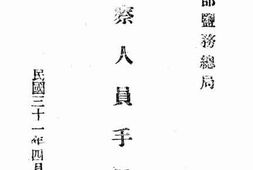 部鹽務總局
察人員手
民國三十一年四月